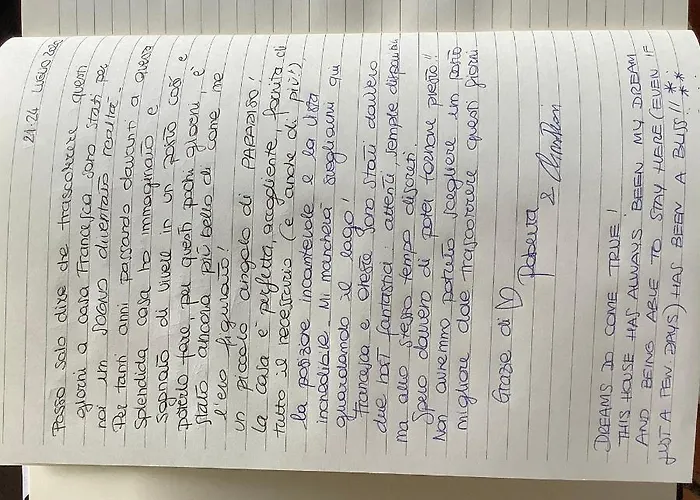 21:24 LUGLIO 202
Posso solo dire che trascorrere questi
giorni a casa Francesca sono stati per
noi un sogno diventato realtà.
Per tanti anni passando davanti a questa
splendida casa ho immaginato e
sognato di vivere in un posto così e
poterlo fare, per questi pochi giorni, è
stato ancora più bello di come me
l'ero figurato!
un piccolo angolo di PARADISO!
La casa è perfetta, accogliente, fornita di
tutto il necessario (e anche di più!)
la posizione incantevole e la vista
incredibile. Mi mancherà svegliarmi qui
guardando il lago!
Francesca e Oreste sono stati davvero
due host fantastici: attenti, sempre disponibili
ma allo stesso tempo discreti.
Spero davvero di poter tornare presto!
Non avremmo potuto scegliere un posto
migliore dove trascorrere questi giorni
Grazie di ♡
Roberta
&
DREAMS DO COME TRUE!
THIS HOUSE HAS ALWAYS BEEN MY DREAM
AND BEING ABLE TO STAY HERE (EVEN IF
JUST A FEW DAYS) HAS BEEN A BLISS!! **